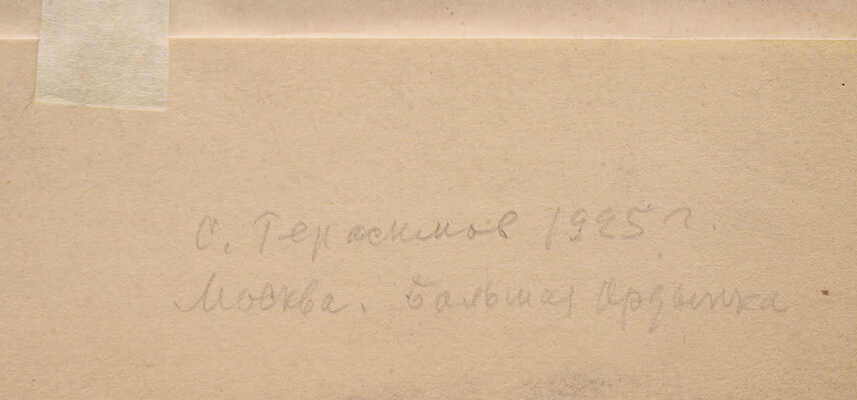 С. Герасимов 1925 г.
Москва. Большая Ордынка